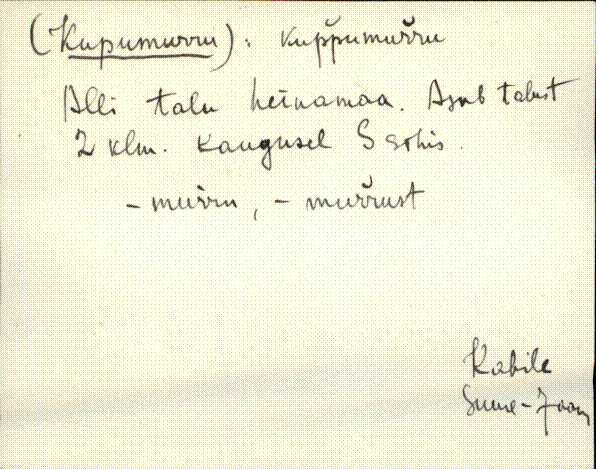 (Kupumurru): kup̆pumur̆ru
Alli talu heinamaa. Asub talust
2 klm. kaugusel S sohis.
- murru, - mur̆rust
Kabile
Suure-Jaani